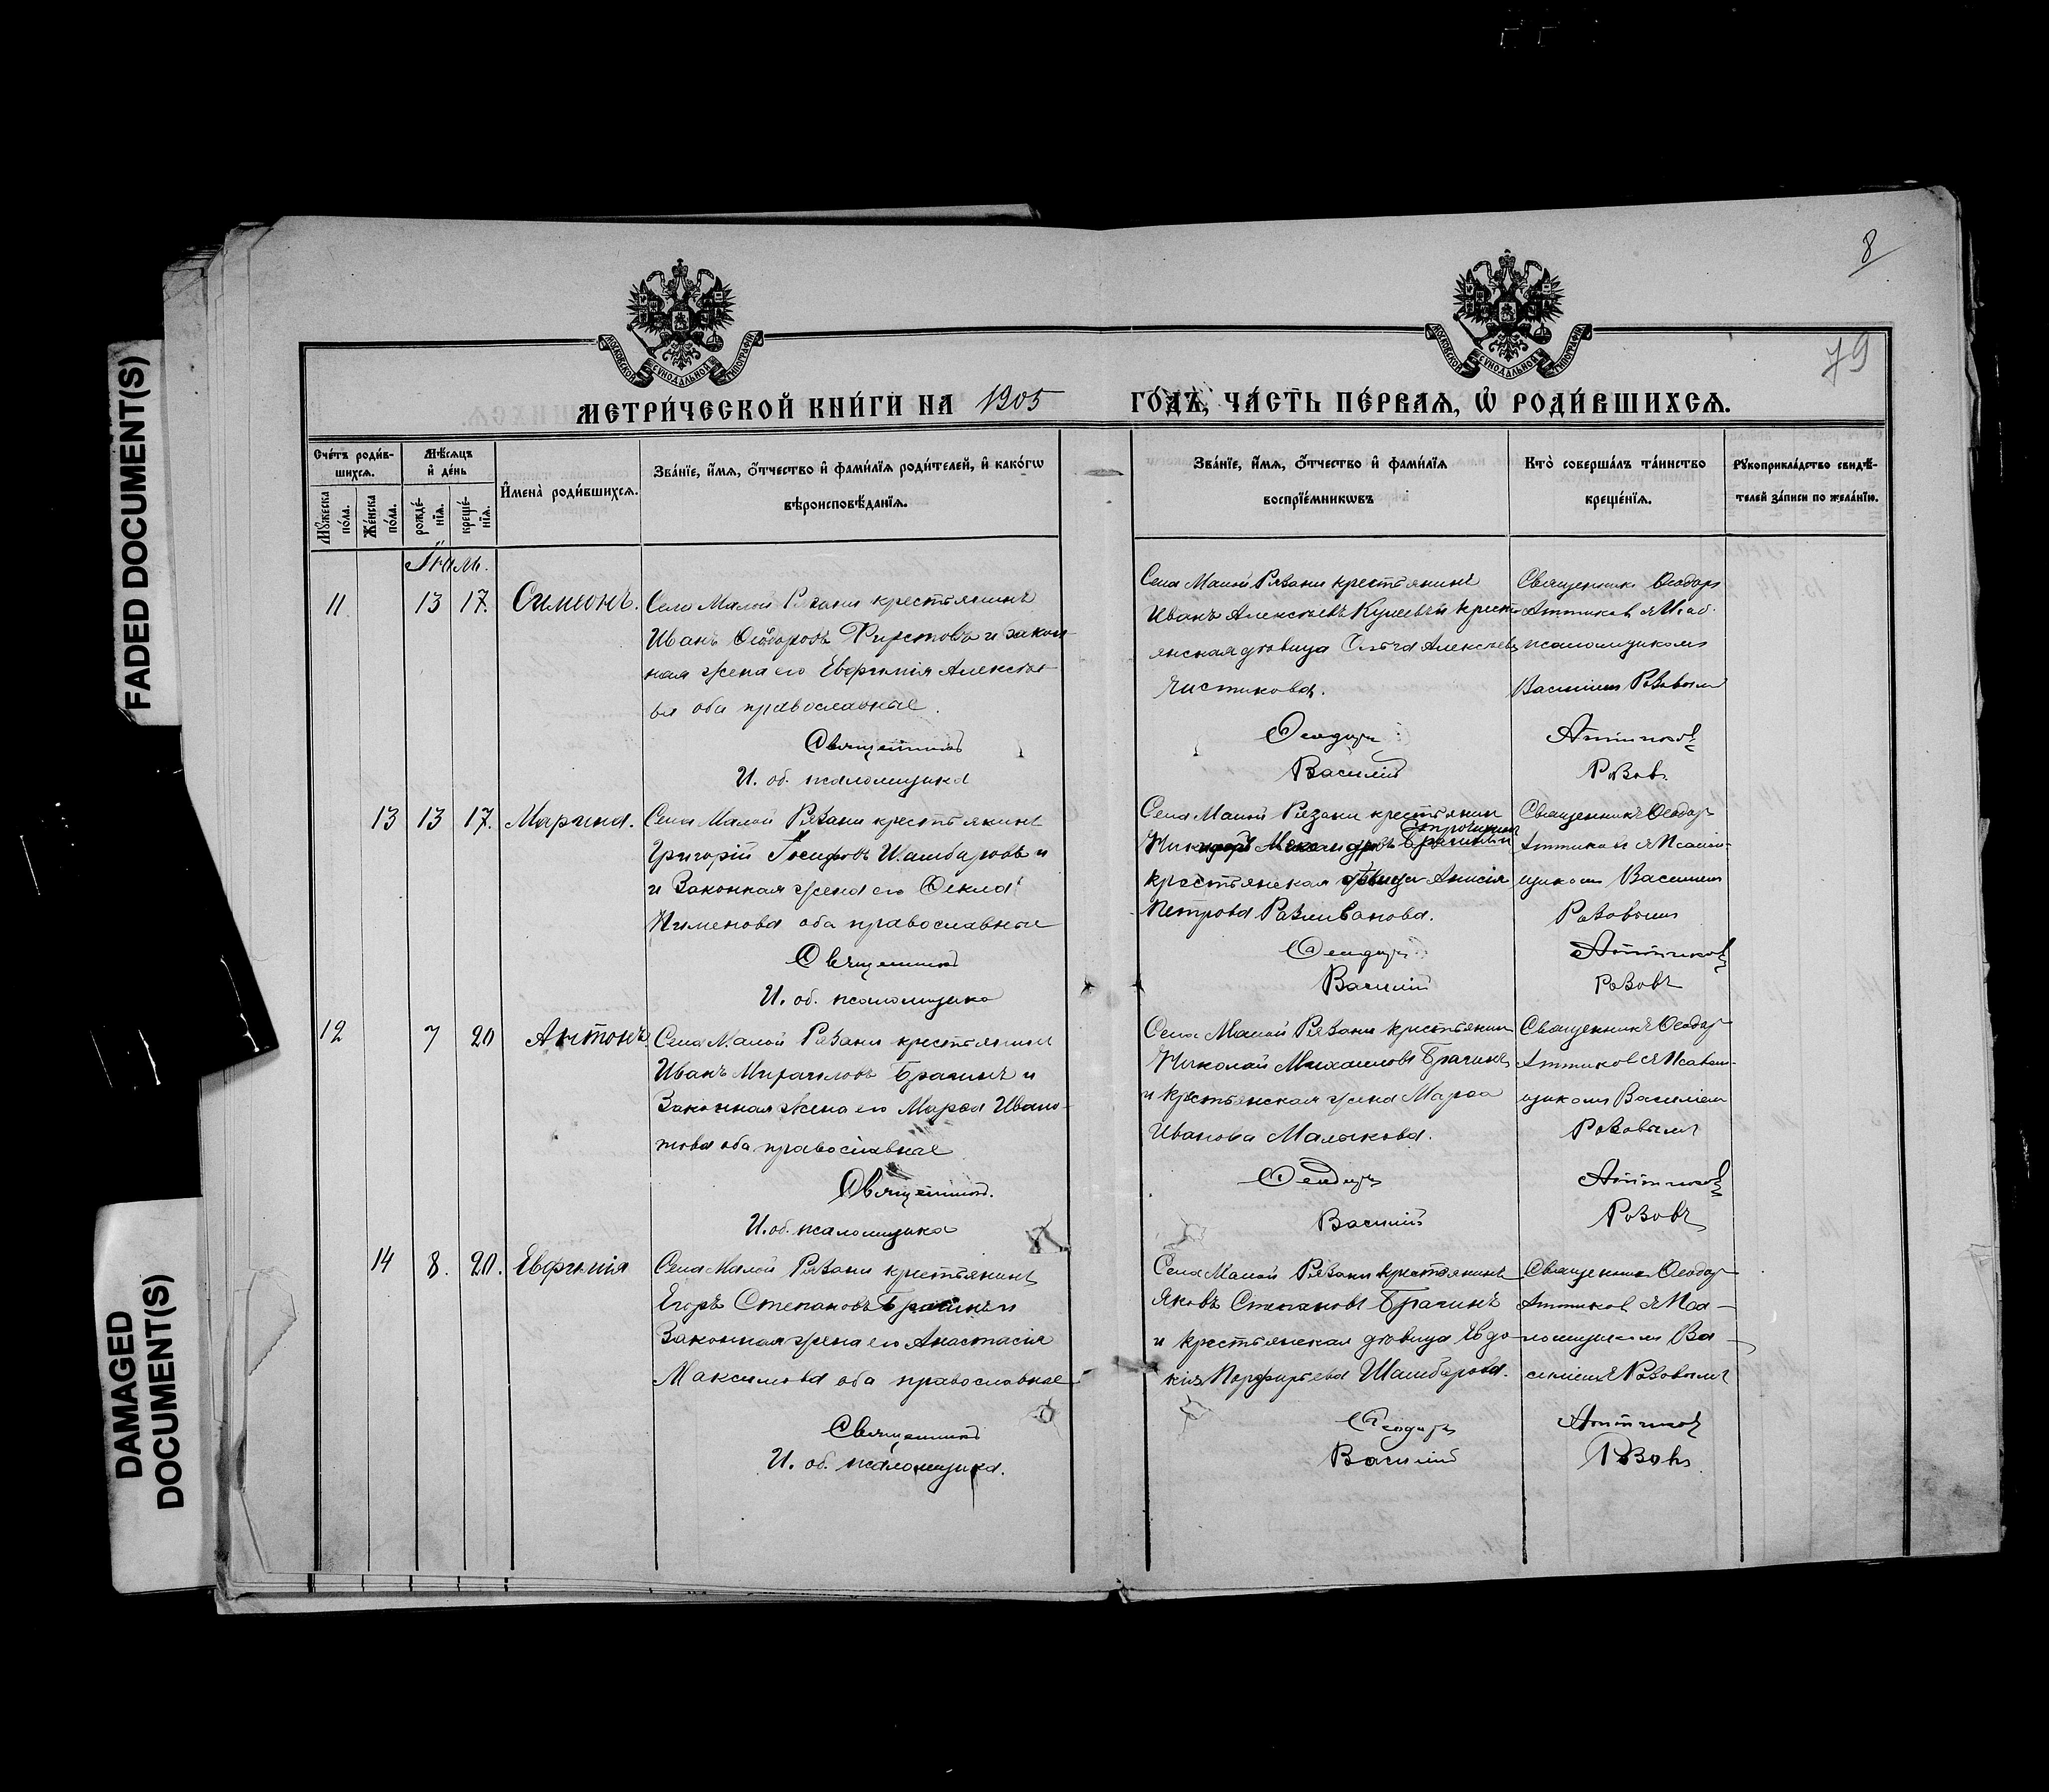 8
79
МОСКОВСКОЙ СѴНОДАЛЬНОЙ ТИПОГРАФІИ
МОСКОВСКОЙ СѴНОДАЛЬНОЙ ТИПОГРАФІИ
МЕТРИ́ЧЕСКОЙ КНИ́ГИ НА 1905 ГО́ДЪ, ЧА́СТЬ ПЕ́РВАѦ, Ѡ҆ РОДИ́ВШИХСѦ.
Сче́тъ роди́в-
шихсѧ.
Мꙋжеска по́ла.
Же́нска по́ла.
Мѣ́сѧцъ
и҆ де́нь
рожде́-нїѧ.
креще́-нїѧ.
И҆мена̀ роди́вшихсѧ.
Зва́нїе, и҆́мѧ, ѻ҆́тчество и҆ фами́лїѧ роди́телей, и҆ како́гѡ
вѣроисповѣ́данїѧ.
Зва́нїе, и҆́мѧ, ѻ҆́тчество и҆ фами́лїѧ
воспрїе́мникѡвъ
Кто̀ соверша́лъ та́инство
креще́нїѧ.
Рꙋкоприкла́дство свидѣ́-
телей за́писи по жела́нїю.
11 13 17. Симеонъ.
Села Малой Рязани крестьянинъ
Иванъ Ѳеодоровъ Фирстовъ и закон-
ная жена его Евфимія Алексѣе-
ва оба православные.
Священникъ
И. об. псаломщика
Села Малой Рязани крестьянинъ
Иванъ Алексѣевъ и крест-
янская дѣвица Ольга Алексѣева
Чистякова.
Ѳеодоръ
Василій
Священникъ Ѳеодоръ
Аттиковъ
псаломщикомъ
Василіемъ Розовымъ
Аттиковъ
Розовъ.
13 13 17. Марина.
Села Малой Рязани крестьянинъ
Григорій Іосифовъ Шамбаровъ и
и Законная жена его Ѳекла
Пименова оба православные
Священникъ
И. об. псаломщика
Села Малой Рязани крестьянин
крестьянская дѣвица Анисія
Петрова Разливанова.
Ѳеодоръ
Василій
Священникъ Ѳеодоръ
Аттиковъ
щикомъ Василіемъ
Розовымъ
Аттиковъ
Розовъ
12 7 20 Антонъ.
Села Малой Рязани крестьянинъ
Иванъ Михаиловъ Брагинъ и
Законная жена его Марѳа
оба православные
Священникъ.
И. об. псаломщика
Села Малой Рязани крестьянин
Николай Михаиловъ Брагинъ
и крестьянская жена Марѳа
Иванова Малыкова.
Ѳеодоръ
Василій
Священникъ Ѳеодоръ
Аттиковъ
щикомъ Василіемъ
Розовымъ
Аттиковъ
Розовъ
14 8. 20. Евфимія
Села Малой Рязани крестьянинъ
Егоръ Степановъ Брагинъ и
Законная жена его Анастасія
Максимова оба православные
Священникъ
И. об. псаломщика.
Села Малой Рязани крестьянинъ
Яковъ Степановъ Брагинъ
и крестьянская дѣвица Евдо-
кія Порфирьева Шамбарова.
Ѳеодоръ
Василій
Священникъ Ѳеодоръ
Аттиковъ
ломщикомъ Ва-
силіемъ Розовымъ
Аттиковъ
Розовъ
FADED DOCUMENT(S)
DAMAGED
DOCUMENT(S)